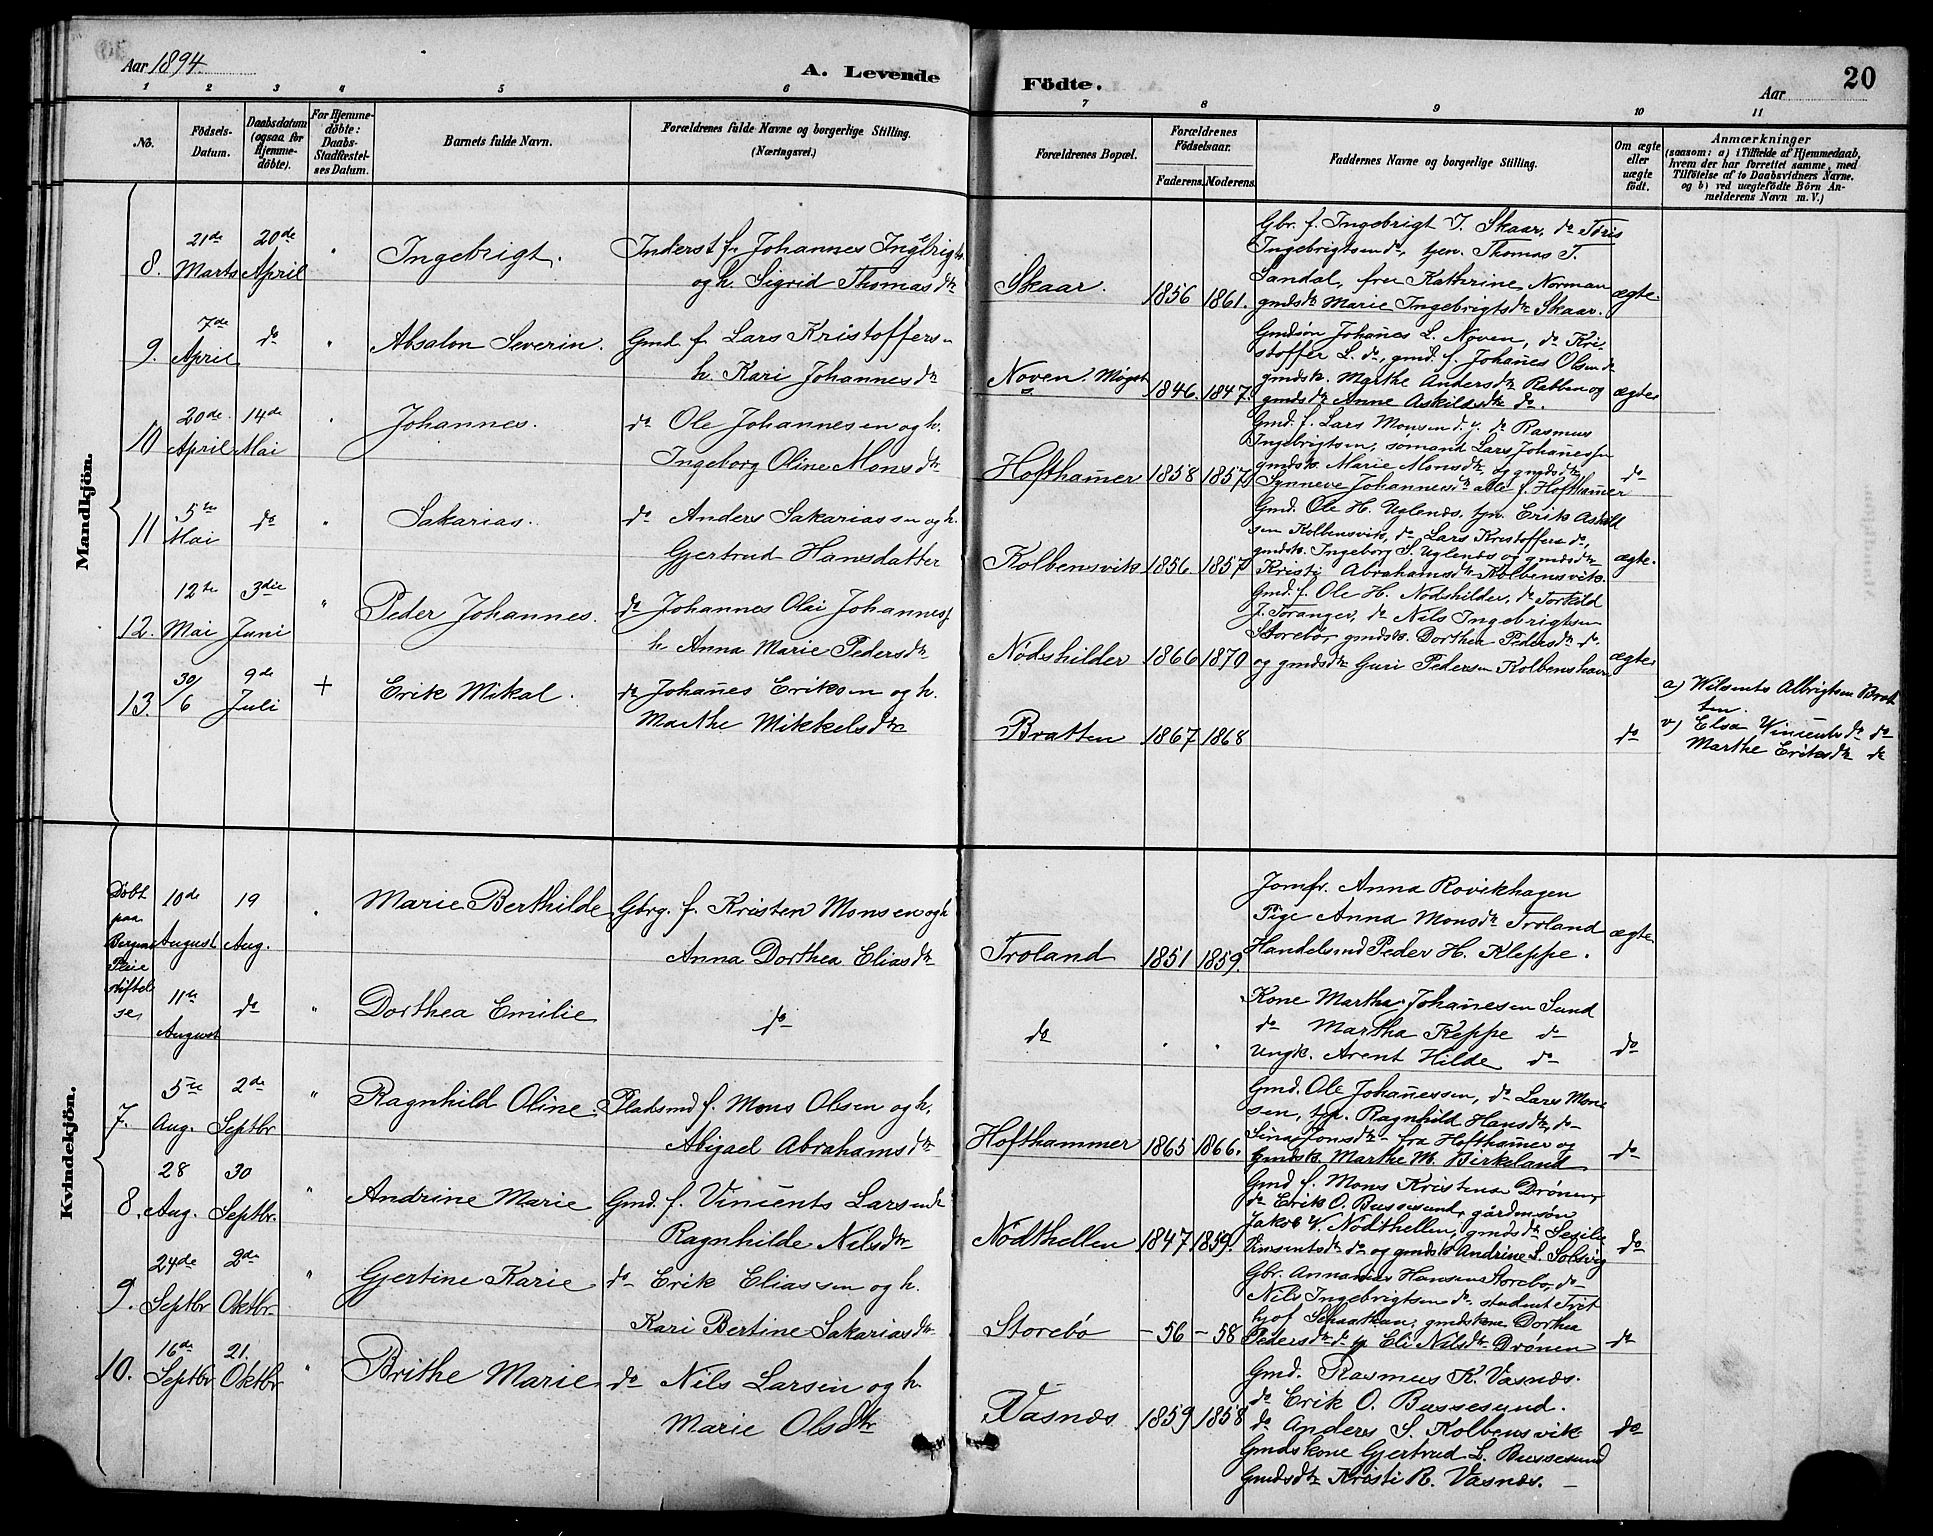 Aar 1894.
A. Levende Födte.
Aar
20
1 2 3 4 5 6 7 8 9 10 11
No.
Födsels-Datum.
Daabsdatum (ogsaa for Hjemmedöbte).
For Hjemmedöbte: Daabs-Stadfæstelses Datum.
Barnets fulde Navn.
Forældrenes fulde Navne og borgerlige Stilling. (Næringsvei.)
Forældrenes Bopæl.
Forældrenes Födselsaar.
Faderens. Moderens.
Faddernes Navne og borgerlige Stilling.
Om ægte eller uægte födt.
Anmærkninger
(saasom: a) i Tilfælde af Hjemmedaab,
hvem der har forrettet samme, med
Tilföielse af to Daabsvidners Navne.
og b) ved uægtefödte Börn An-
melderens Navn m. V.)
Mandkjön.
8. 21de Marts 20de April " Ingebrigt.
Inderst f. Johannes Ingebrigts.
og h. Sigrid Thomasdtr
Skaar. 1856 1861.
Gbr. f. Ingebrigt J. Skaar, do
Ingebrigtsen do, tjen. Thomas T.
Sandal, frea Kathrine Norman
gmdsdtr Marie Ingebrigtsdtr Skaar.
ægte.
9. 7de April do " Absalon Severin.
Gmd. f. Lars Kristoffersn
h. Kari Johannesdtr
Noven. Møgst 1846. 1847.
Gmdsøn Johanes L. Noven, do Kri-
stoffer L. do, gmd. f. Johanes Olsen do
gmdsk. Marthe Andersdtr Rabben og
gmdsdtr Anne Askildsdtr do.
ægte
10 20de April 14de Mai " Johannes.
do Ole Johannesen og h.
Ingeborg Oline Monsdtr
Hofthamer 1858 1857
Gmd. f. Lars Monsen d. y. do Rasmus
Ingebrigtsen, sømand Lars Johanessen
gmdsk. Marie Monsdtr, og gmdsdtr
Synneve Johannesdtr alle f. Hofthamer
do
11 5te Mai do " Sakarias.
do Anders Sakariassen og h.
Gjertrud Hansdatter
Kolbensvik 1856 1857
Gmd. Ole H. Uglenes, tjn. Erik Askild
sen Kolbensvik, do Lars Kristoffersen do,
gmdsk. Ingeborg S. Uglenes og gmdsdtr
Kristi Abrahamsdtr Kolbensvik.
ægte.
12. 12te Mai 3die Juni " Peder Johannes.
do Johannes Olai Johannes.
h. Anna Marie Pedersdtr
Nødshilder 1866 1870
Gmd. f. Ole H. Nødshilder, do Torkild
J. Toranger, do Nils Ingebrigtsen
Storebø, gmdsk. Dorthea Pedersdtr do
og gmdsdtr Guri Pedersen Kolbenshavn
ægte
13. 30/6 9de Juli + Erik Mikal.
do Johanes Eriksen og h.
Marthe Mikkelsdtr
Bratten 1867 1868
do
a) Albrigtsen Brat
ten.
v) Elsa Vincentsdtr do
Marthe Eriksdtr do
Kvindekjön.
Døbt
paa
Bergens
Pleie
stiftel
se,
10de August 19 Aug. " Marie Berthilde
Gbrg. f. Kristen Monsen og h
Anna Dorthea Eliasdtr
Troland 1851 1859.
Jomfr. Anna Rovikhagen
Pige Anna Monsdtr Troland
Handelsmd Peder H. Kleppe.
ægte
11te August do " Dorthea Emilie
do
do " "
Kone Martha Johanesen Sund
do Martha Keppe do
Ungk. Arent Hilde do
do
7. 5te Aug. 2de Septbr " Ragnhild Oline.
Pladsmd f. Mons Olsen og h.
Abigael Abrahamsdtr
Hofthammer 1865 1866.
Gmd. Ole Johanessen, do Lars Mon
sen, tjp. Ragnhild Hansdtr, do
Sina Jonsdtr fra Hofthamer og
Gmdsk. Marthe M. Birkeland
do
8. 28 Aug. 30 Septbr. " Andrine Marie
Gmd. f. Vincents Larsen h
Ragnhilde Nilsdtr
Nødthellen 1847 1859.
Gmd f. Mons Kristensen Drønen,
do Erik O. Bussesund, gårdmsøn
Jakob V. Nødthellen, gmdsdtr
do og gmdsk Andrine L. Solsvig
do
9. 24de Septbr 2de Oktbr. " Gjertine Karie
do Erik Eliassen og h.
Kari Bertine Sakariasdtr
Storebø – 56 – 58
Gbr. Annanias Hansen Storebø, do
Nils Ingebrigtsen do, student Frit
hjof, gmdskone Dorthea
Pedersdtr do p. Eli Nilsdtr Drönen
do
10. 16de Septbr 21. Oktbr " Brithe Marie
do Nils Larsen og h.
Marie Olsdtr
Vasnæs 1859 1858
Gmd. Rasmus K. Vasnæs.
do Erik O. Bussesund.
do Anders S. Kolbensvik
Gmdskone Gjertrud L. Bussesund
Gmdsdtr Kristi R. Vasnæs.
do